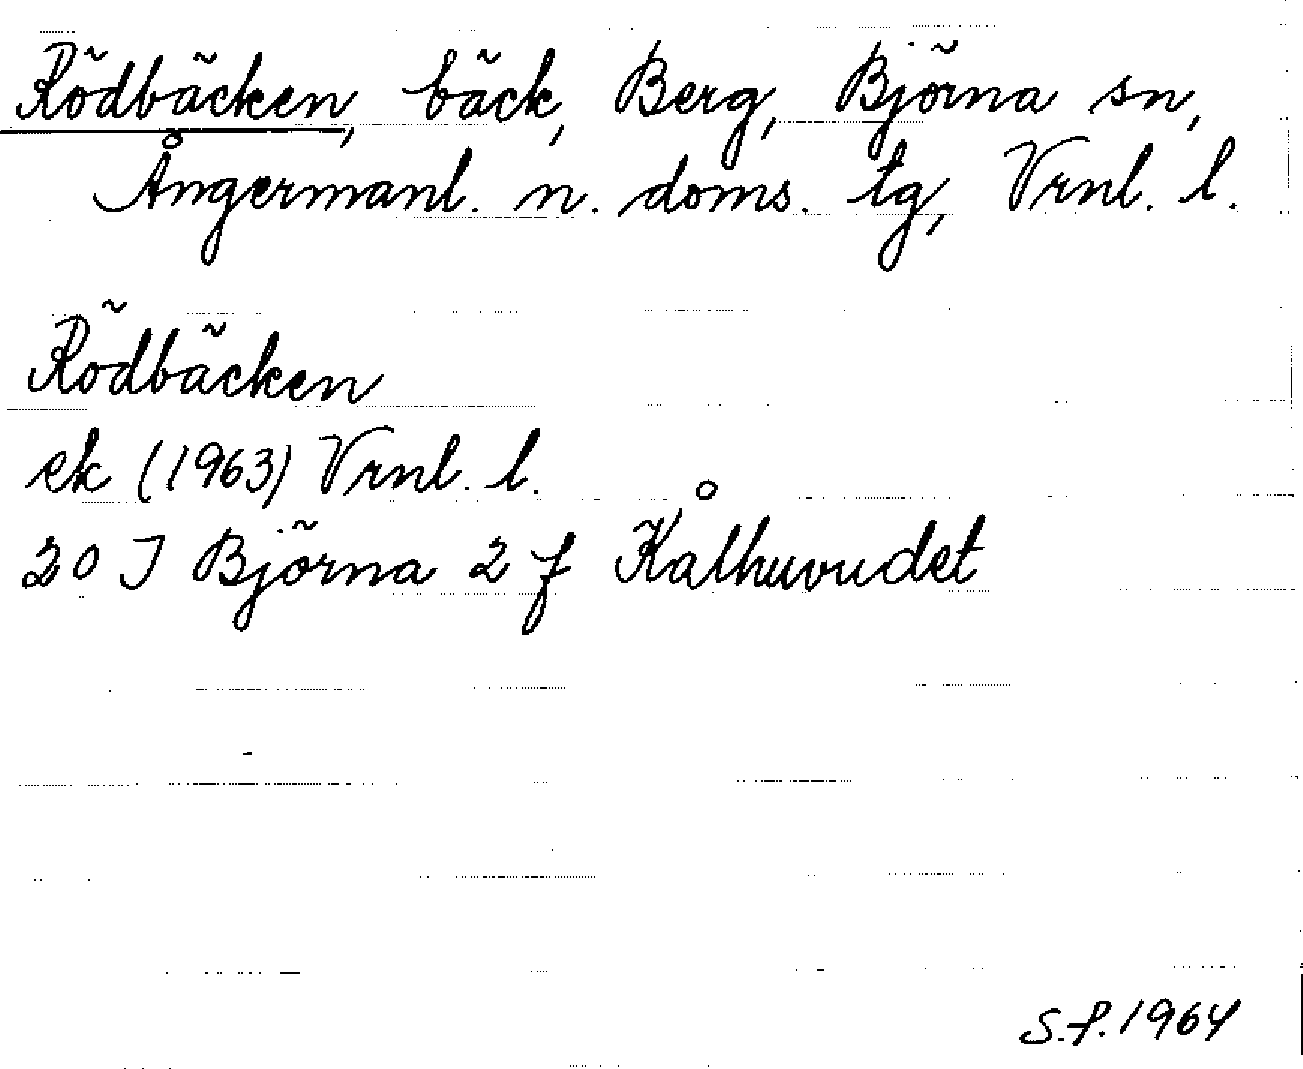 Rödbäcken, bäck, Berg, Björna sn,
Ångermanl. n. doms. tg, Vrnl. l.
Rödbäcken
ek (1963) Vrnl. l.
20 I Björna 2 f Kålhuvudet
S.f. 1964